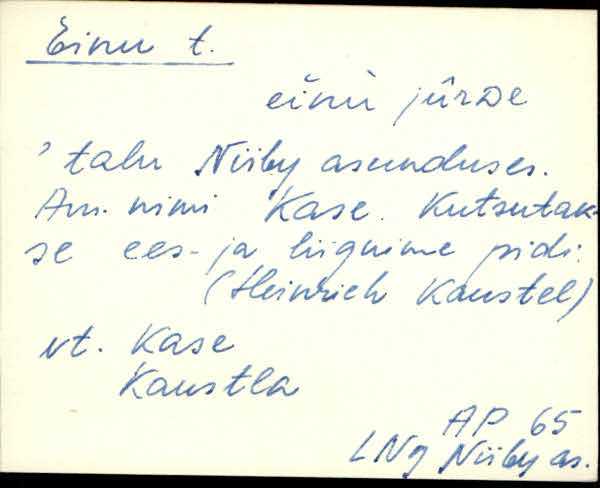 Einu t.
einu jūrDe
' talu Niiby asunduses.
Am. nimi Kase. Kutsutak-
se ees- ja liignime pidi.
(Heinrich Kaustel)
vt. Kase
Kaustla
AP 65
LNg Niiby as.